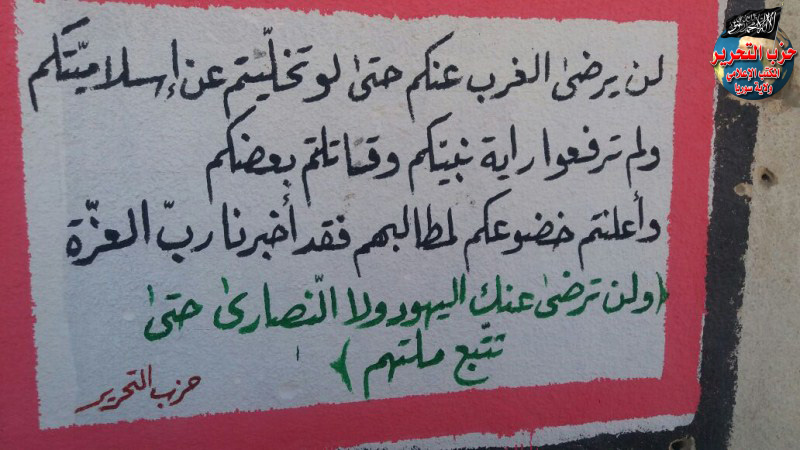 لن يرضىٰ الغرب عنكم حتىٰ لو تخلّيتم عن إسلاميّتكم
ولم ترفعوا راية نبيّكم وقاتلتم بعضكم
وأعلنتم خضوعكم لمطالبهم فقد أخبرنا ربّ العزّة
﴿ولن ترضىٰ عنك اليهود ولا النّصارىٰ حتىٰ
تتّبع ملتهم﴾
حزب التحرير
حزب التحرير
المكتب الإعلامي
ولاية سوريا